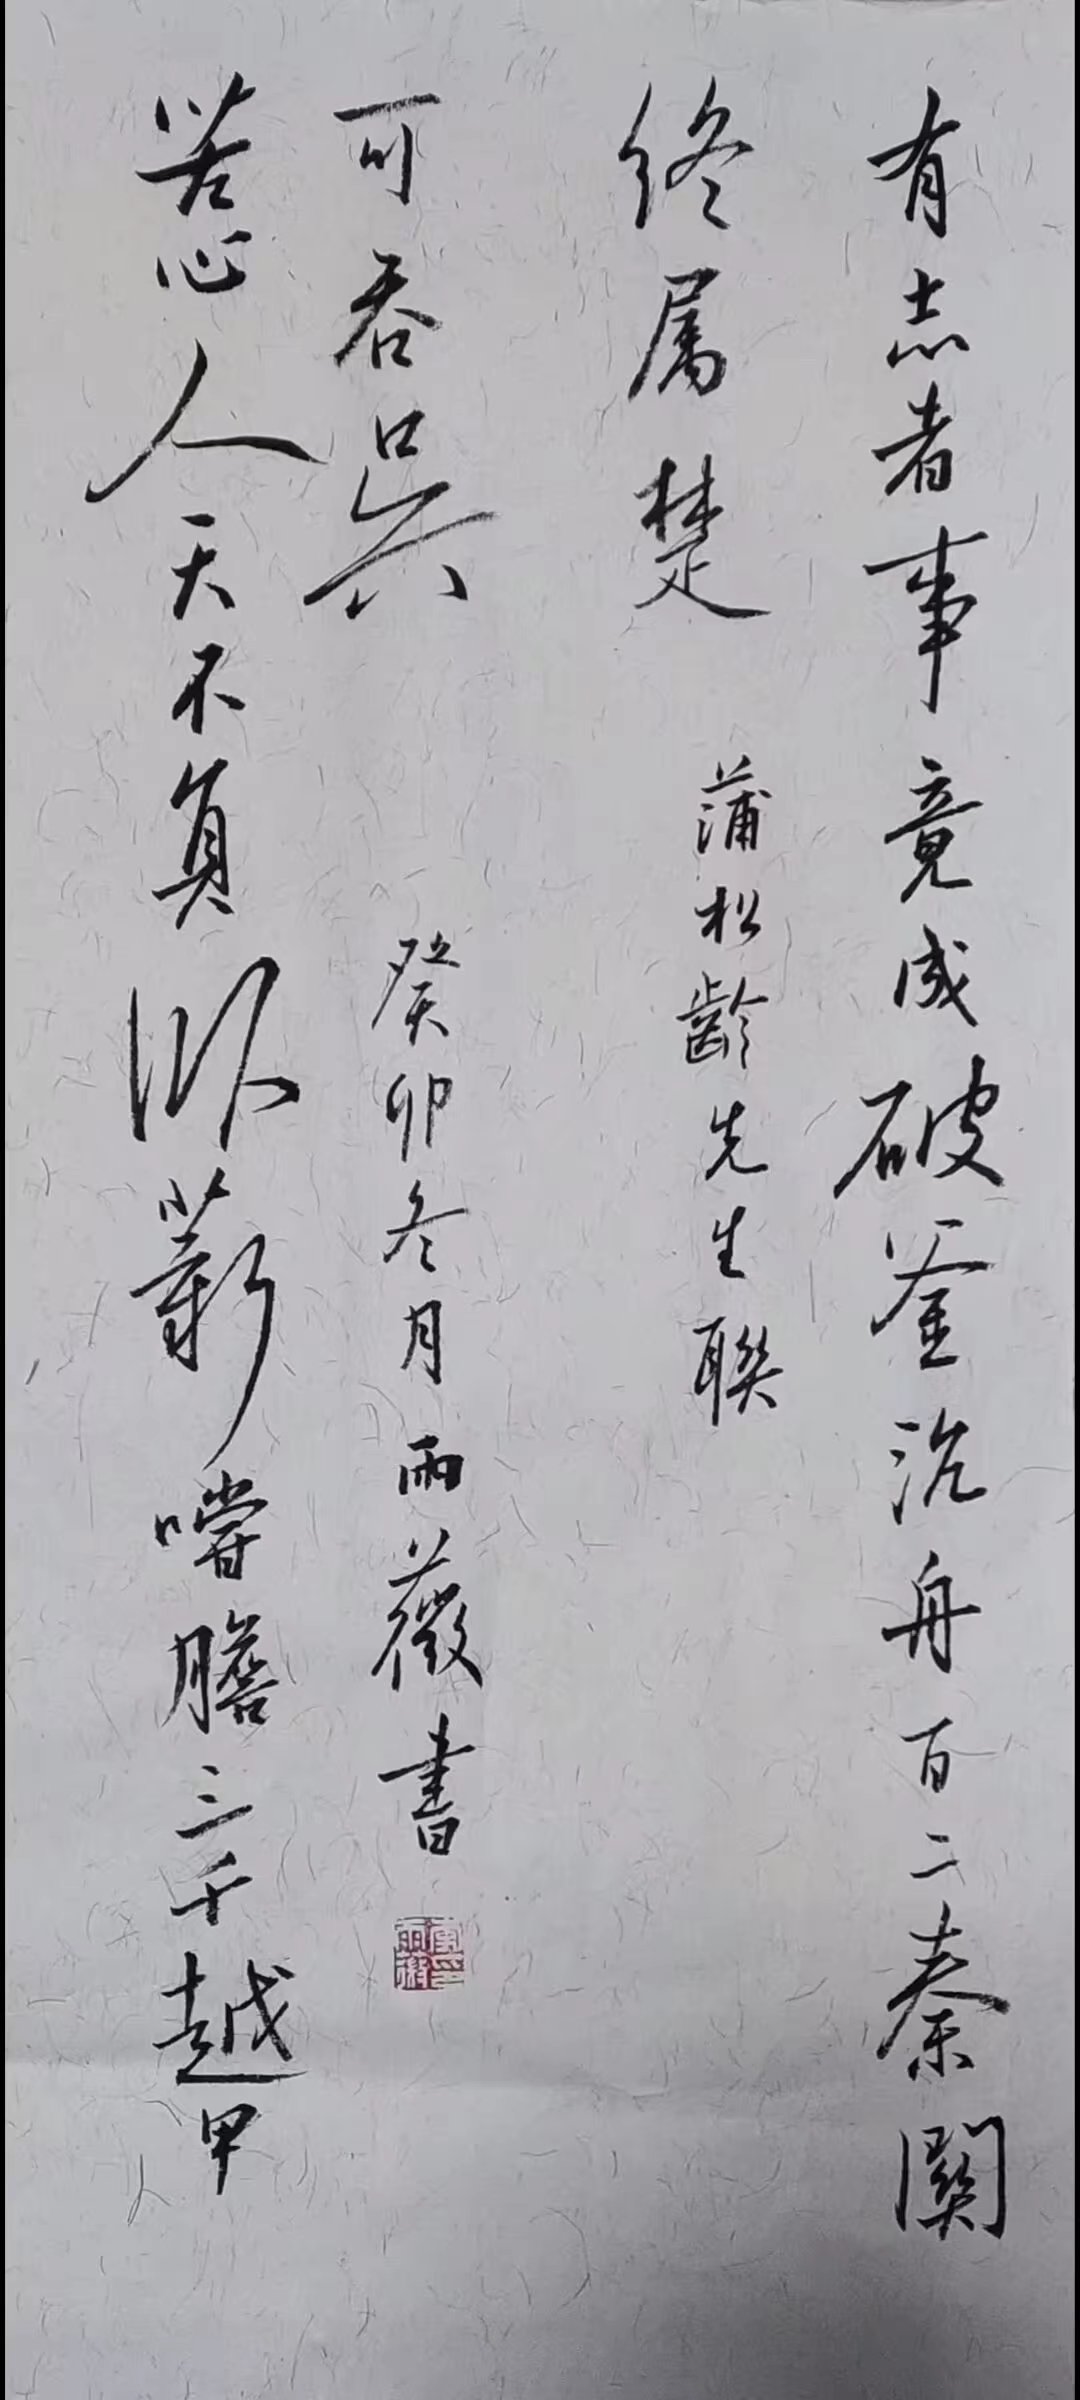 有志者事竟成破釜沉舟百二秦關
終属楚
蒲松齡先生聯
苦心人天不負卧薪嚐膽三千越甲
可吞吳
癸卯冬月雨薇書